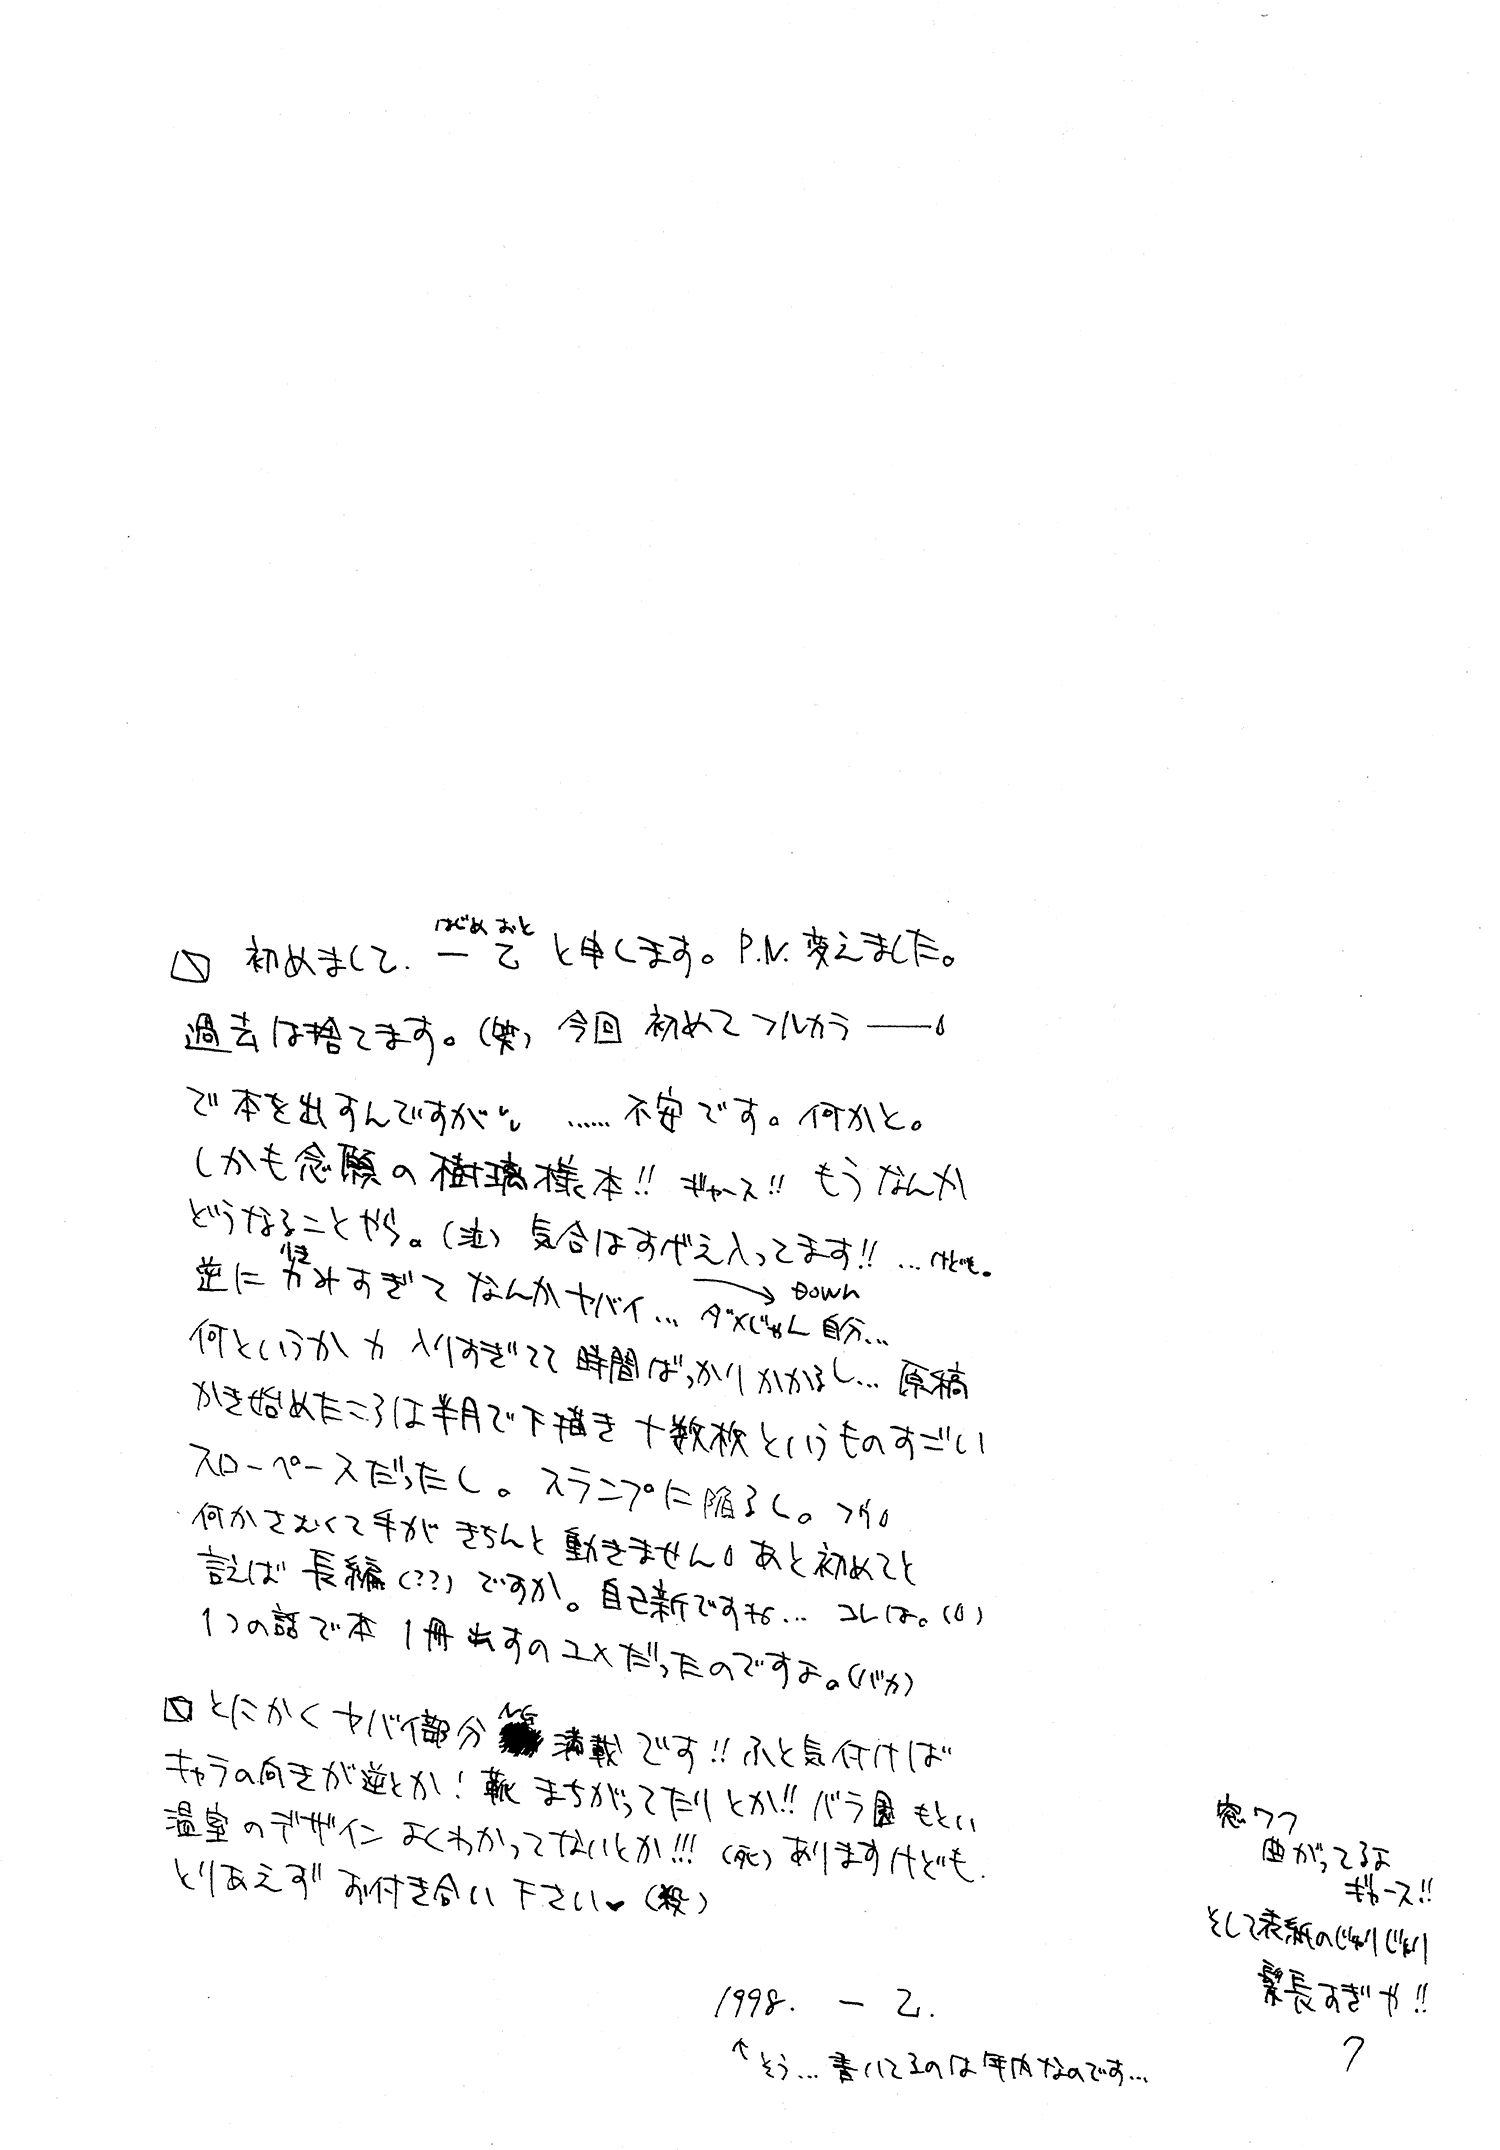 初めまして. 一乙と申します。P.N.変えました。
はじめ おと
過去は捨てます。(笑) 今回 初めてフルカラ――
で本を出すんですが ……不安です。何かと。
しかも念願の樹璃様本!! ギャース!! もうなんか
どうなることやら。(泣) 気合はすげえ入ってます!! …けども。
逆に力みすぎてなんかヤバイ… ダメじゃん自分…
りき
Down
何というか力 入りすぎてて時間ばっかりかかるし… 原稿
かき始めたころは半月で下描き十数枚というものすごい
スローペースだったし。スランプに陥るし。フウ
何かさむくて手がきちんと動きません あと初めてと
言えば長編(??)ですか。自己新ですね… コレは。
1つの話で本1冊出すのユメだったのですよ。(バカ)
とにかくヤバイ部分 満載です!! ふと気付けば
NG
キャラの向きが逆とか! 靴まちがってたりとか!! バラ園もとい
温室のデザインよくわかってないとか!!! (死) ありますけども.
とりあえずお付き合い下さい♥ (殺)
1998. 一乙.
↑そう… 書いてるのは年内なのです…
窓ワク
曲がってるよ
ギャース!!
そして表紙のじゅりじゅり
髪長すぎや!!
7